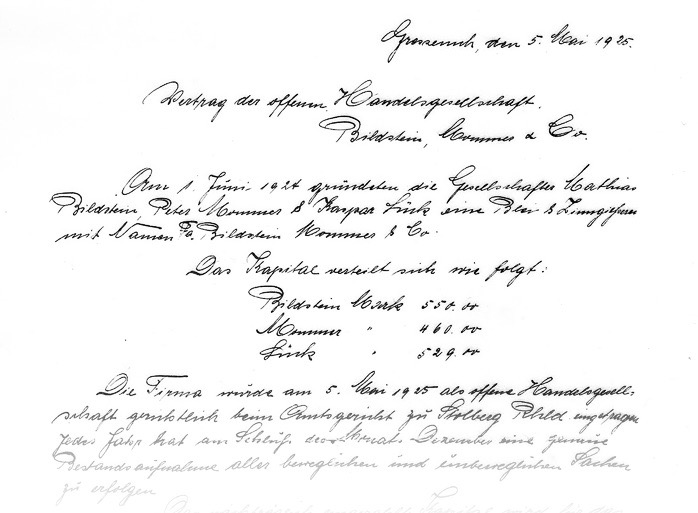 Gressenich, den 5. Mai 1925.
Vertrag der offenen Handelsgesellschaft.
Bildstein, Mommer & Co.
Am 1. Juni 1924 gründeten die Gesellschafter Mathias
Bildstein, Peter Mommer & Kaspar Lück eine Blei & Zinngiesserei
mit Namen Fa. Bildstein Mommer & Co.
Das Kapital verteilt sich wie folgt:
Bildstein Mark 550.00
Mommer " 460.00
Lück " 529.00
Die Firma wurde am 5. Mai 1925 als offene Handelsgesell-
schaft gerichtlich beim Amtsgericht zu Stolberg Rhld eingetragen
Jedes Jahr hat am Schluß des Monats Dezember eine genaue
Bestandsaufnahme aller beweglichen und unbeweglichen Sachen
zu erfolgen